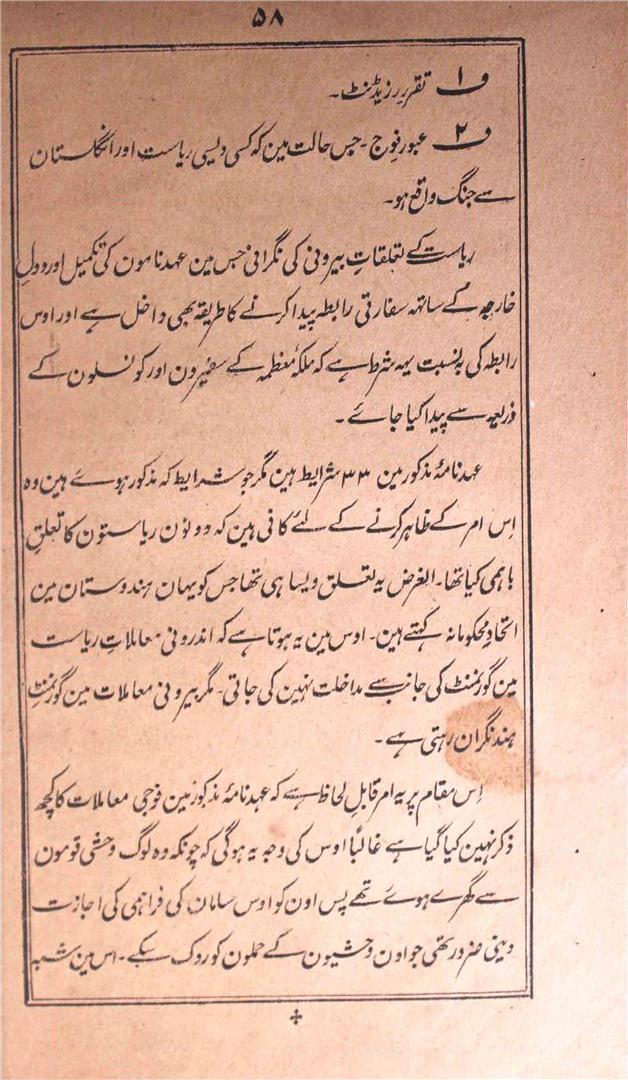 ۵۸
ف۱ تقرر رزیڈنٹ۔
ف۲ عبور فوج۔ جس حالت مین کہ کسی دیسی ریاست اور انگلستان
سے جنگ واقع ہو۔
ریاست کے تعلقات بیرونی کی نگرانی جس مین عہدنامون کی تکمیل اور دولِ
خارجہ کے ساتھ سفارتی رابطہ پیدا کرنے کا طریقہ بھی داخل ہے اور اوس
رابطہ کی بہ نسبت یہہ شرط ہے کہ ملکۂ معظمہ کے سفیرون اور کونسلون کے
ذریعہ سے پیدا کیا جائے۔
عہدنامۂ مذکور مین ۳۳ شرایط ہین مگر جو شرایط کہ مذکور ہوئے ہین وہ
اِس امر کے ظاہر کرنے کے لئے کافی ہین کہ دونون ریاستون کا تعلقِ
باہمی کیا تھا۔ الغرض یہ تعلق ویسا ہی تھا جس کو یہان ہندوستان مین
اتحادِ محکومانہ کہتے ہین۔ اوس مین یہ ہوتا ہے کہ اندرونی معاملات ریاست
مین گورنمنٹ کی جانب سے مداخلت نہین کی جاتی۔ مگر بیرونی معاملات مین گورنمنٹِ
ہند نگران رہتی ہے۔
اِس مقام پر یہ امر قابلِ لحاظ ہے کہ عہدنامۂ مذکور مین فوجی معاملات کا کچھ
ذکر نہین کیا گیا ہے غالباً اوس کی وجہ یہ ہوگی کہ چونکہ وہ لوگ وحشی قومون
سے گھرے ہوئے تھے پس اون کو اوس سامان کی فراہمی کی اجازت
دینی ضرور تھی جو اون وحشیون کے حملون کو روک سکے۔ اس مین شبہ